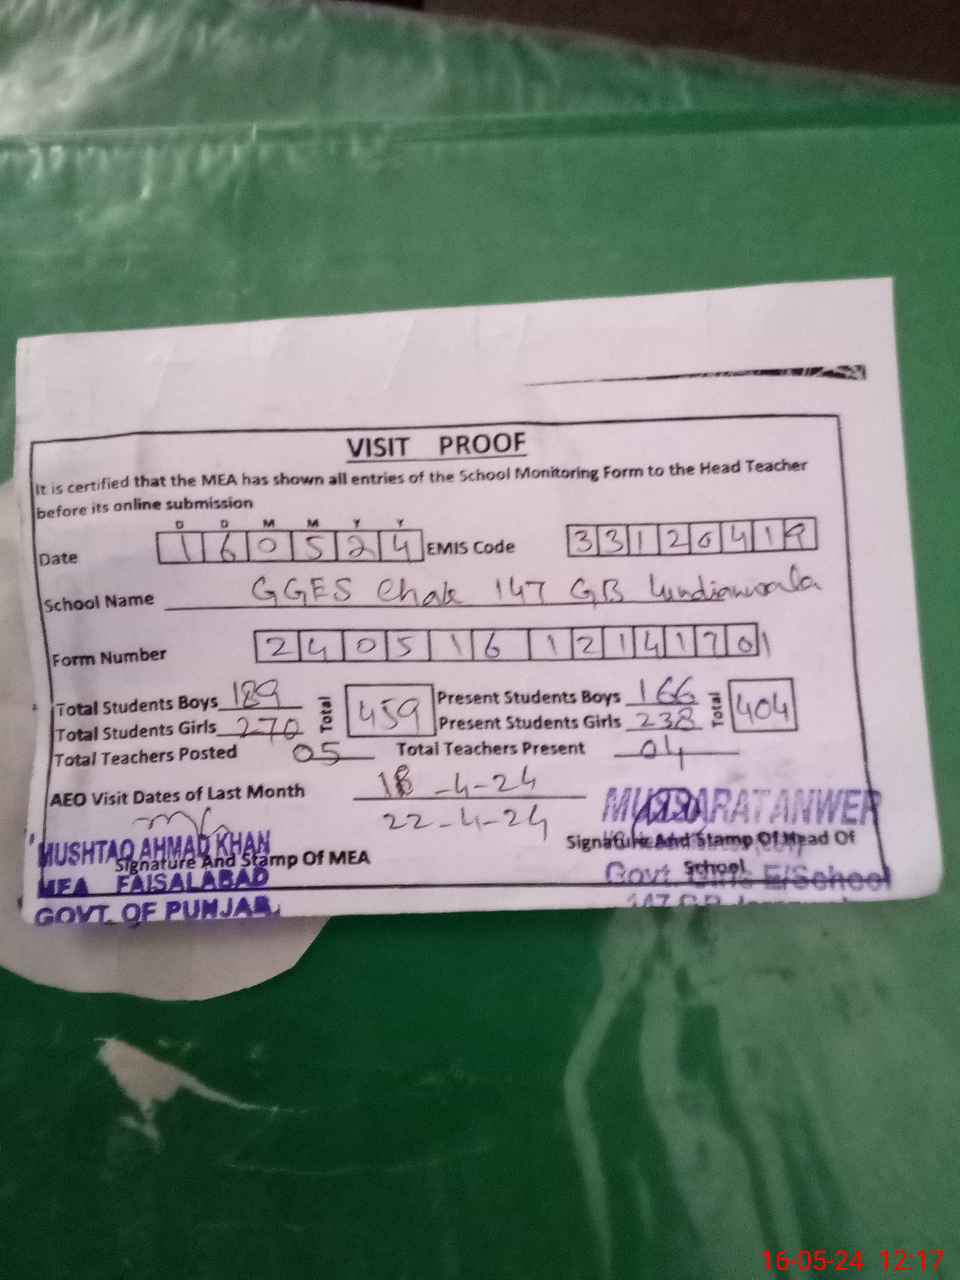 VISIT PROOF
It is certified that the MEA has shown all entries of the School Monitoring Form to the Head Teacher
before its online submission
D D M M Y Y
Date 1 6 0 5 2 4 EMIS Code 3 3 1 2 0 4 1 9
School Name GGES Chak 147 GB
Form Number 2 4 0 5 1 6 1 2 1 4 1 7 0 1
Total Students Boys 189 Total 459 Present Students Boys 166 Total 404
Total Students Girls 270 Present Students Girls 238
Total Teachers Posted 05 Total Teachers Present 04
AEO Visit Dates of Last Month 18-4-24
22-4-24
MUSHTAQ AHMAD KHAN
Signature And Stamp Of MEA
MEA FAISALABAD
GOVT. OF PUNJAB.
MUSSARAT ANWER
Signature And Stamp Of Head Of
School
Govt. Girls E/School
147 GB
16-05-24 12:17